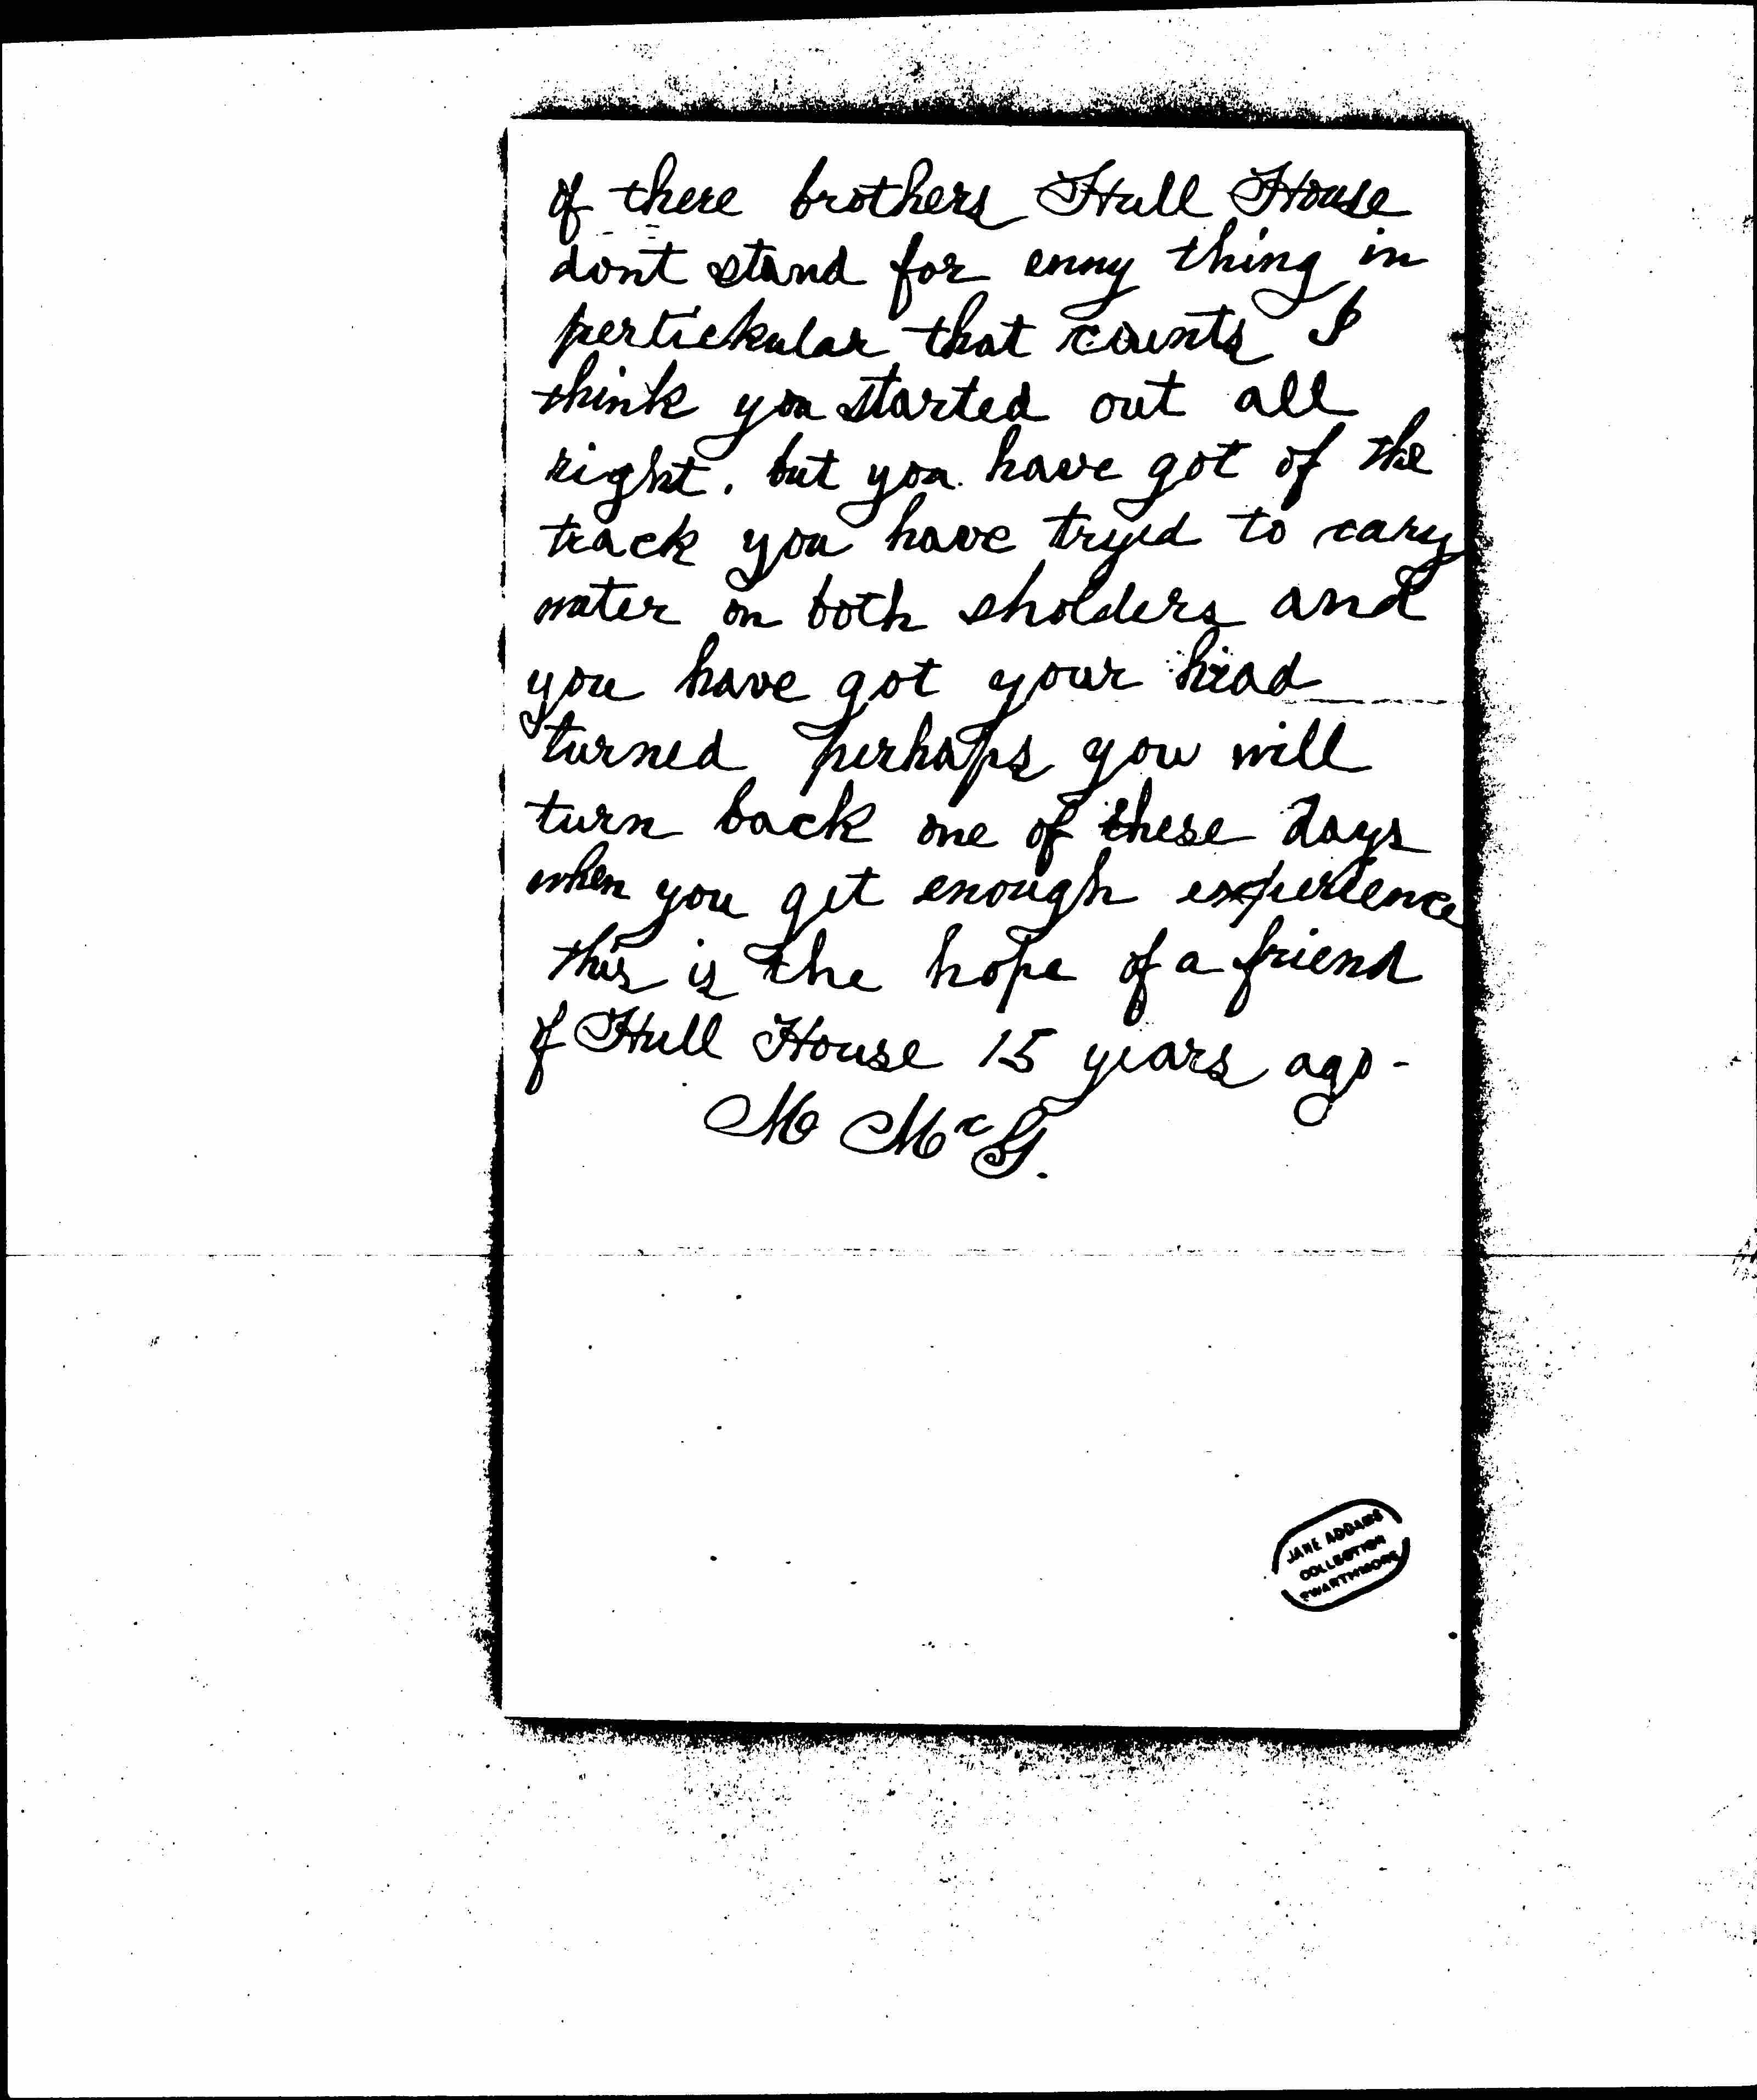 of there brothers Hull House
dont stand for enny thing in
pertickular that counts I
think you started out all
right. but you have got of the
track you have tryed to cary
water on both sholders and
you have got your head
turned perhaps you will
turn back one of these days
when you get enough experience
this is the hope of a friend
of Hull House 15 years ago-
M McG.
JANE ADDAMS
COLLECTION
SWARTHMORE